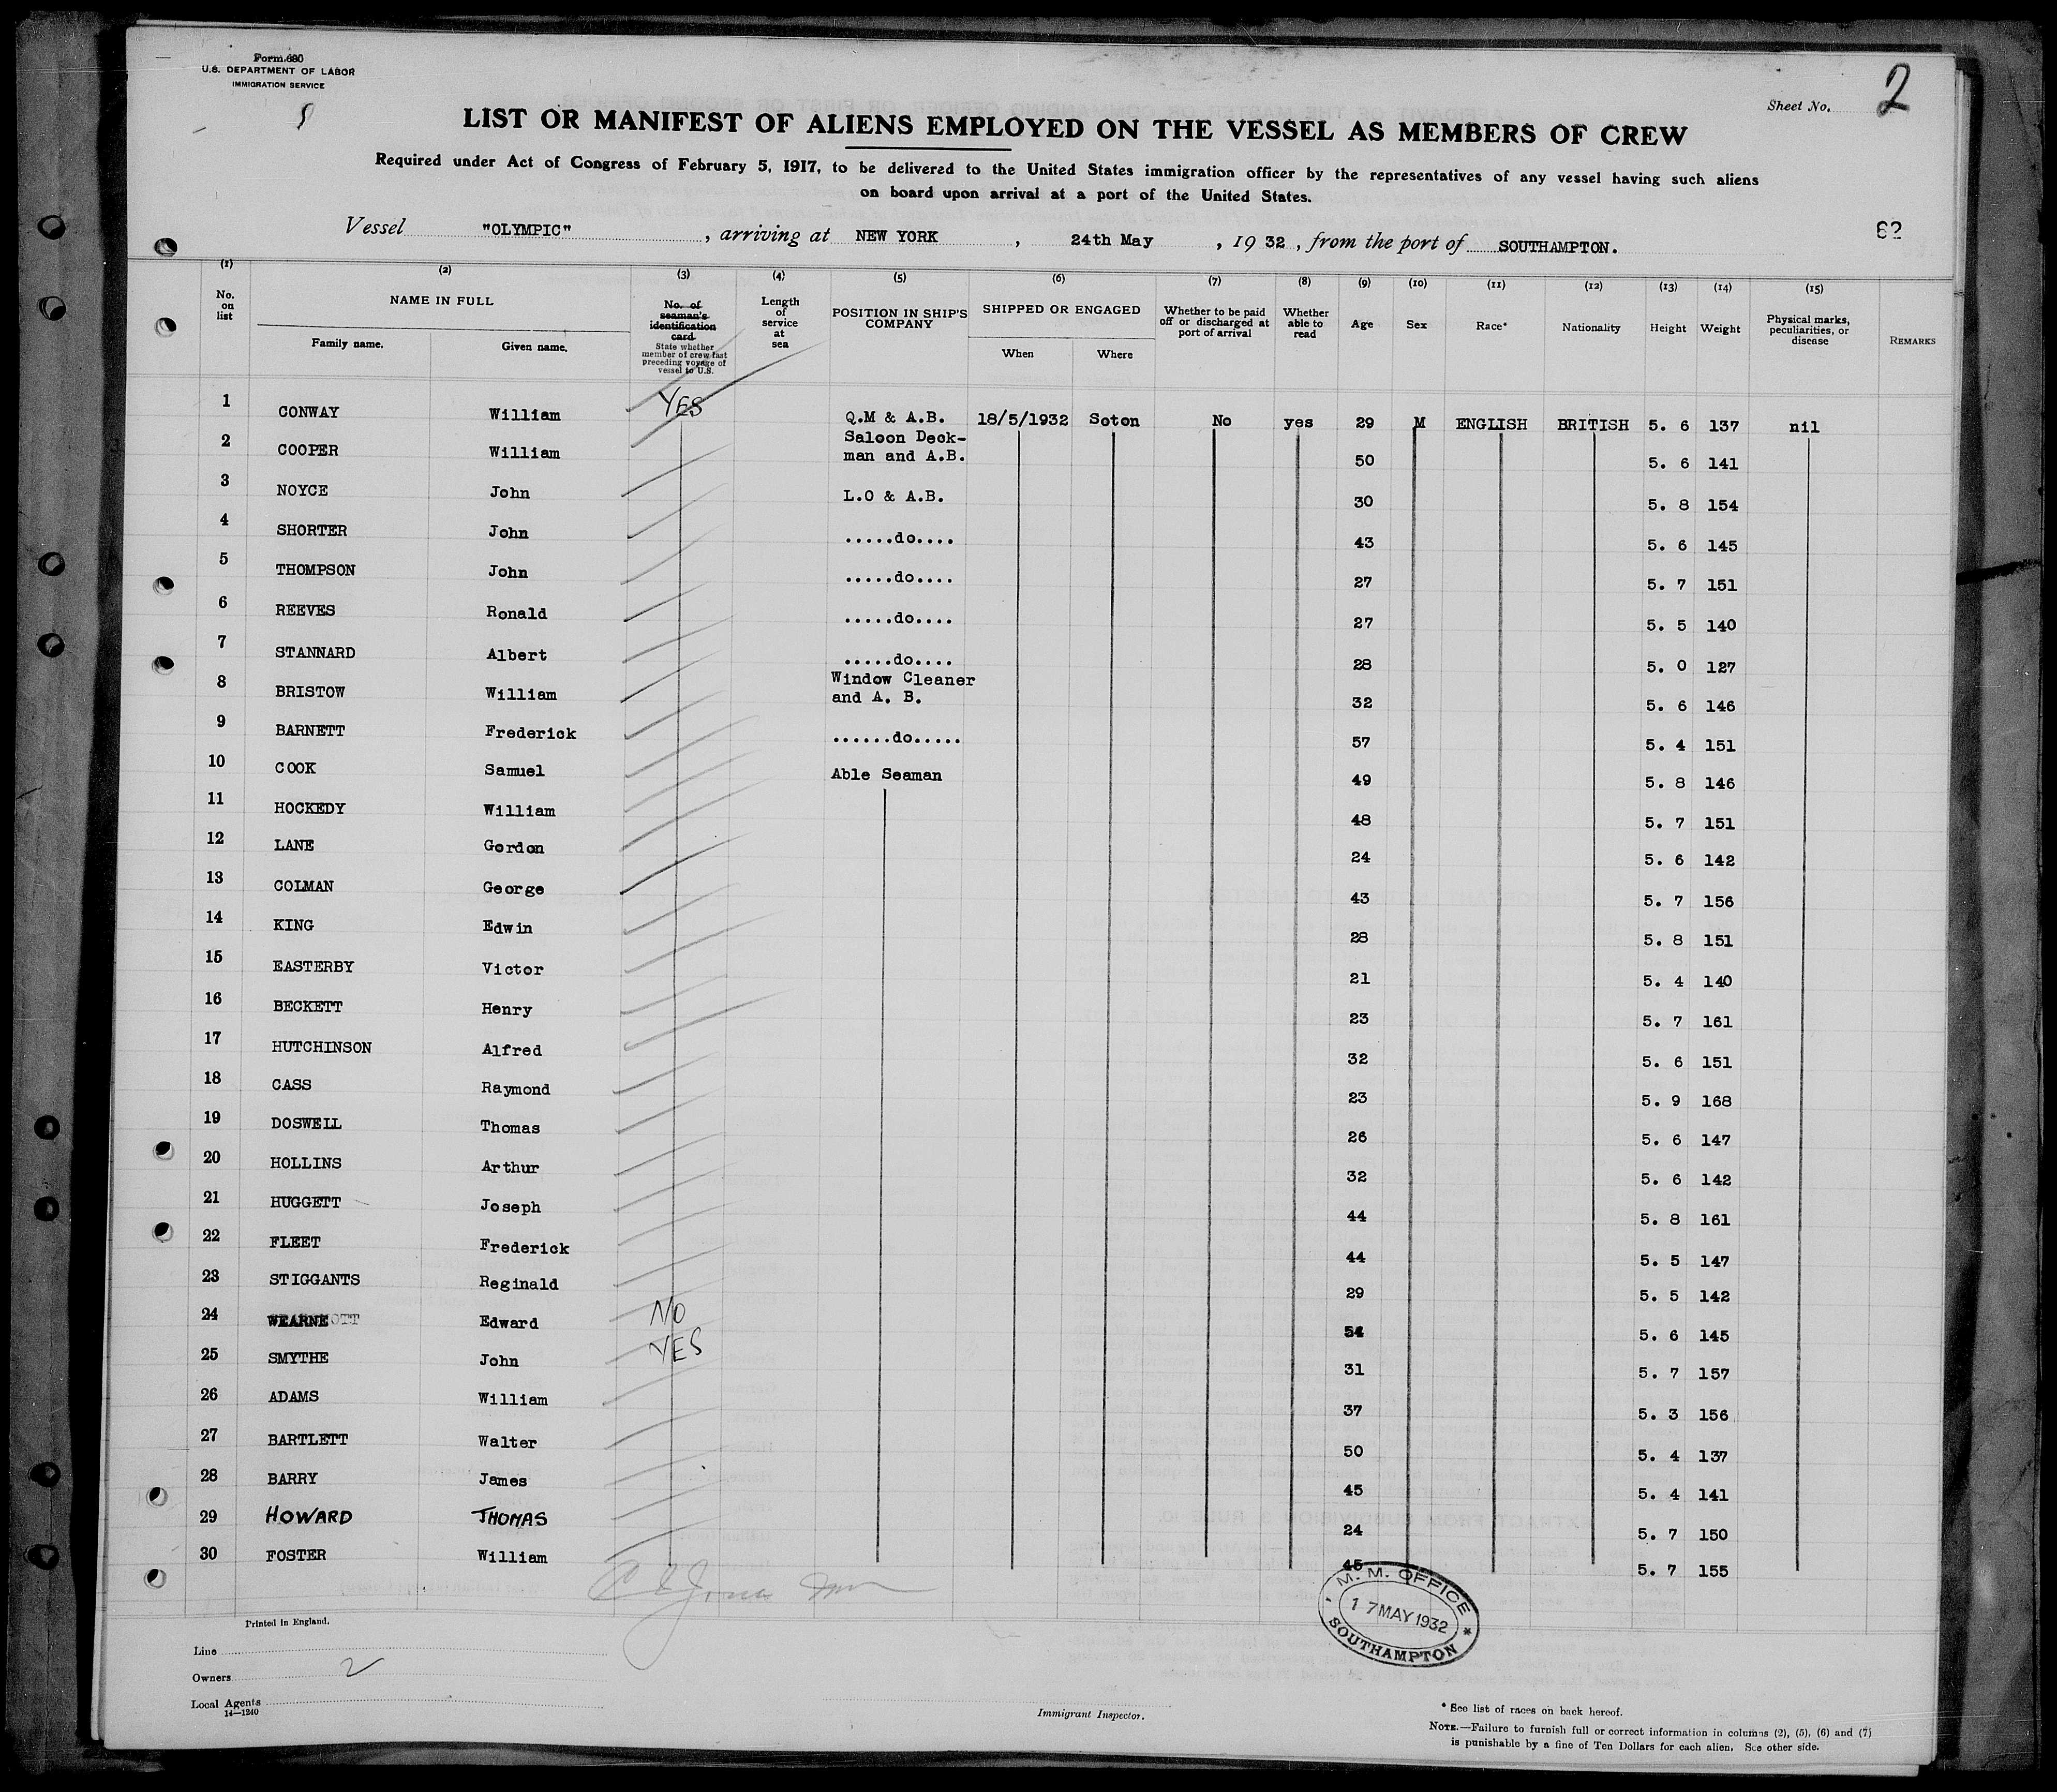 Form 680
U.S. DEPARTMENT OF LABOR
IMMIGRATION SERVICE
Sheet No. 2
LIST OR MANIFEST OF ALIENS EMPLOYED ON THE VESSEL AS MEMBERS OF CREW
Required under Act of Congress of February 5, 1917, to be delivered to the United States immigration officer by the representatives of any vessel having such aliens
on board upon arrival at a port of the United States.
62
Vessel "OLYMPIC", arriving at NEW YORK, 24th May, 1932, from the port of SOUTHAMPTON.
(1) (2) (3) (4) (5) (6) (7) (8) (9) (10) (11) (12) (13) (14) (15)
No. on list NAME IN FULL Family name. Given name. No. of seaman's identification card State whether member of crew last preceding voyage of vessel to U.S. Length of service at sea POSITION IN SHIP'S COMPANY SHIPPED OR ENGAGED When Where Whether to be paid off or discharged at port of arrival Whether able to read Age Sex Race* Nationality Height Weight Physical marks, peculiarities, or disease REMARKS
1 CONWAY William YES Q.M & A.B. 18/5/1932 Soton No yes 29 M ENGLISH BRITISH 5. 6 137 nil
2 COOPER William Saloon Deck-man and A.B. 50 5. 6 141
3 NOYCE John L.O & A.B. 30 5. 8 154
4 SHORTER John .....do.... 43 5. 6 145
5 THOMPSON John .....do.... 27 5. 7 151
6 REEVES Ronald .....do.... 27 5. 5 140
7 STANNARD Albert .....do.... 28 5. 0 127
8 BRISTOW William Window Cleaner and A. B. 32 5. 6 146
9 BARNETT Frederick ......do..... 57 5. 4 151
10 COOK Samuel Able Seaman 49 5. 8 146
11 HOCKEDY William 48 5. 7 151
12 LANE Gordon 24 5. 6 142
13 COLMAN George 43 5. 7 156
14 KING Edwin 28 5. 8 151
15 EASTERBY Victor 21 5. 4 140
16 BECKETT Henry 23 5. 7 161
17 HUTCHINSON Alfred 32 5. 6 151
18 CASS Raymond 23 5. 9 168
19 DOSWELL Thomas 26 5. 6 147
20 HOLLINS Arthur 32 5. 6 142
21 HUGGETT Joseph 44 5. 8 161
22 FLEET Frederick 44 5. 5 147
23 STIGGANTS Reginald 29 5. 5 142
24 WEARNE Edward NO 54 5. 6 145
25 SMYTHE John YES 31 5. 7 157
26 ADAMS William 37 5. 3 156
27 BARTLETT Walter 50 5. 4 137
28 BARRY James 45 5. 4 141
29 HOWARD THOMAS 24 5. 7 150
30 FOSTER William 45 5. 7 155
M. M. OFFICE
17 MAY 1932
SOUTHAMPTON
Printed in England.
Line
Owners 2
Local Agents
14—1240
Immigrant Inspector.
* See list of races on back hereof.
NOTE.—Failure to furnish full or correct information in columns (2), (5), (6) and (7)
is punishable by a fine of Ten Dollars for each alien. See other side.